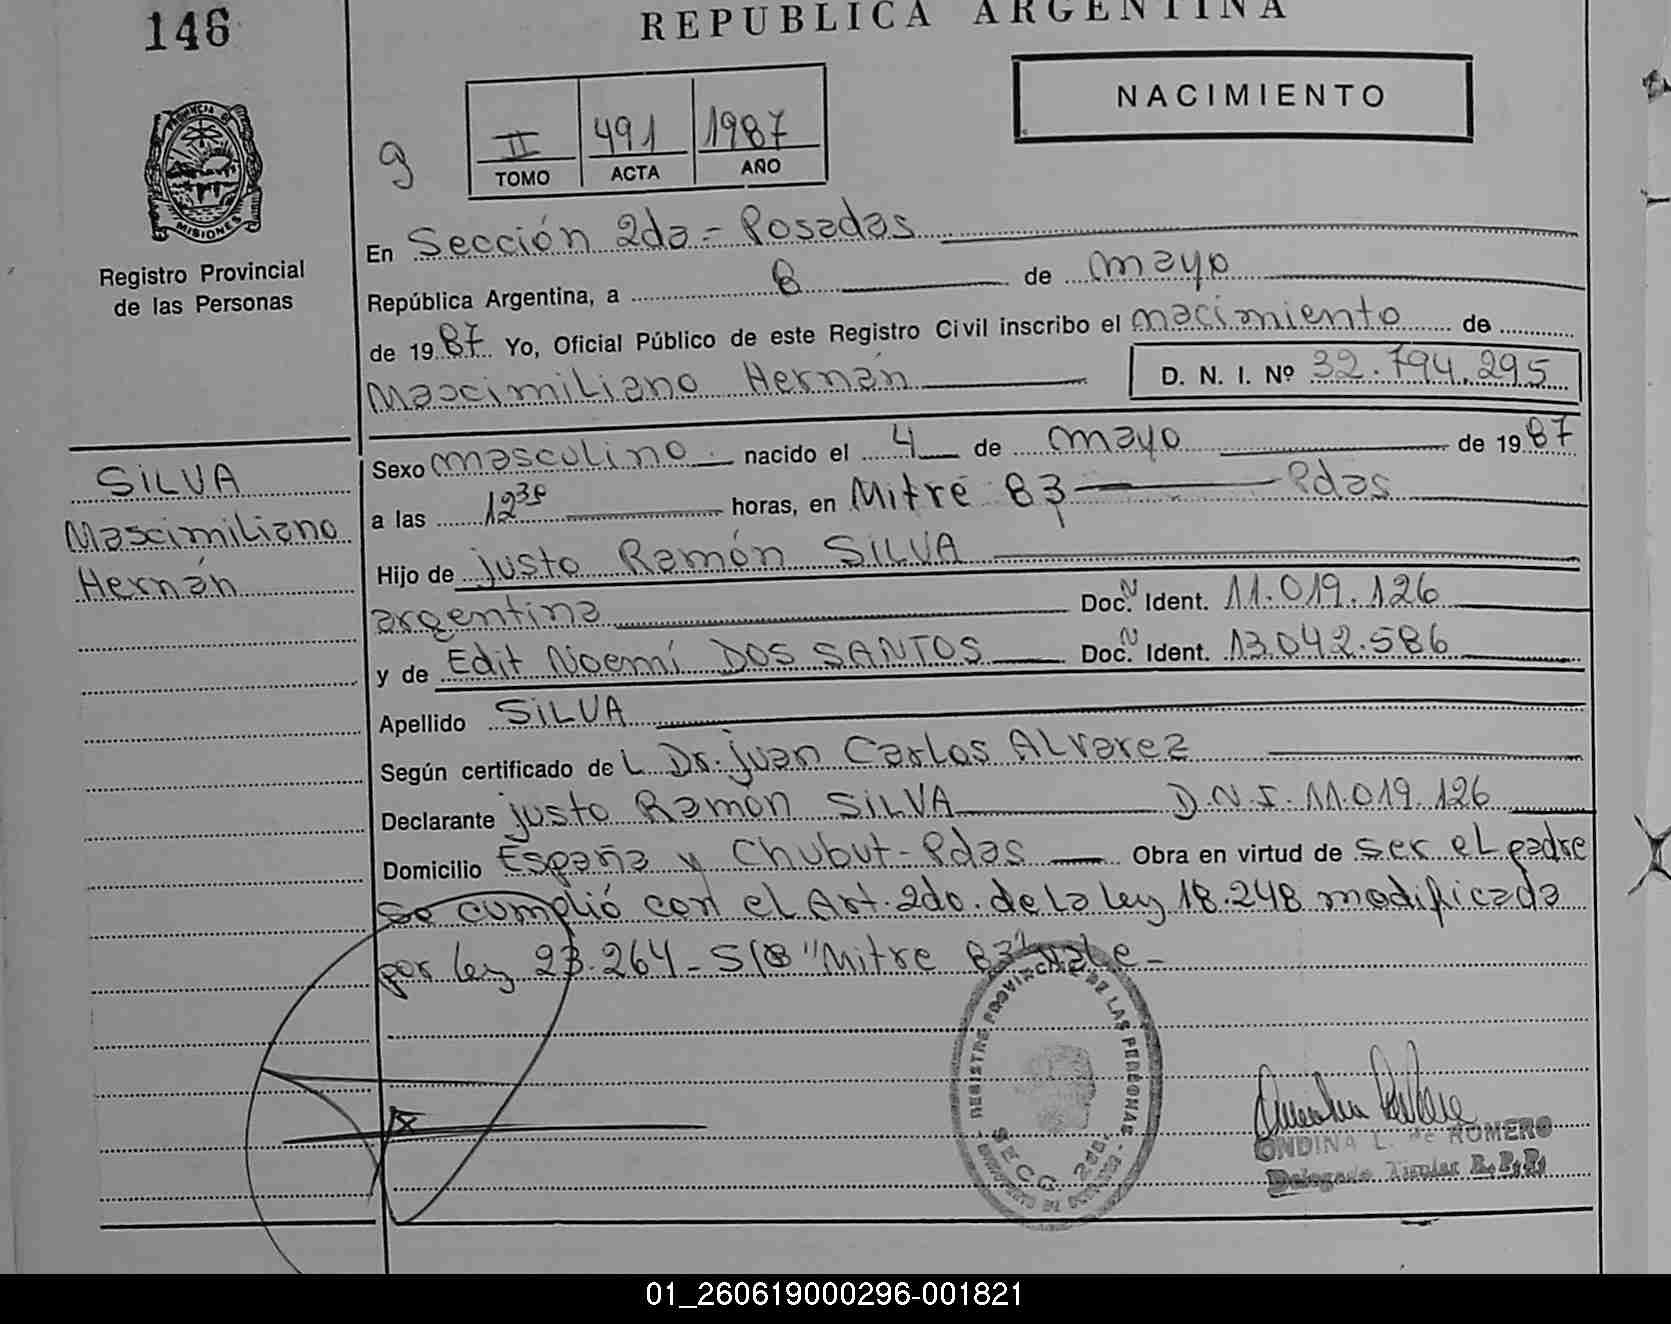 146
REPUBLICA ARGENTINA
NACIMIENTO
II 491 1987
TOMO ACTA AÑO
9
PROVINCIA DE MISIONES
Registro Provincial
de las Personas
En Sección 2da - Posadas
República Argentina, a 8 de mayo
de 1987 Yo, Oficial Público de este Registro Civil inscribo el nacimiento de
Mascimiliano Hernán D. N. I. Nº 32.794.295
SILVA
Mascimiliano
Hernán
Sexo masculino nacido el 4 de mayo de 1987
a las 12 30 horas, en Mitre 83 Pdas
Hijo de justo Ramón SILVA
argentina Doc. N Ident. 11.019.126
y de Edit Noemí DOS SANTOS Doc. N Ident. 13.042.586
Apellido SILVA
Según certificado de L Dr. juan Carlos ALvarez
Declarante justo Ramón SILVA D.N.I. 11.019.126
Domicilio España y Chubut - Pdas Obra en virtud de ser el padre
se cumplió con el Art. 2do. de la ley 18.248 modificada
por ley 23.264 - S/B "Mitre 83" vale -
REGISTRO PROVINCIAL DE LAS PERSONAS
SECC. 2da.
ONDINA L. de ROMERO
Delegada Titular R.P.P.
01_260619000296-001821